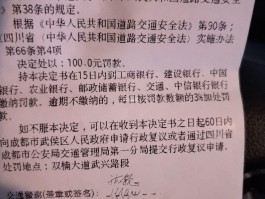 第38条的规定。
根据《中华人民共和国道路交通安全法》第90条;
《四川省《中华人民共和国道路交通安全法》实施办法
第66条第4项
决定处以:100.0元罚款。
持本决定书在15日内到工商银行、建设银行、中国
银行、农业银行、邮政储蓄银行、交通、中信银行银行
缴纳罚款。逾期不缴纳的,每日按罚款数额的3%加处罚
款。
如不服本决定,可以在收到本决定书之日起60日内
向成都市武侯区人民政府申请行政复议或者通过四川省
成都市公安局交通管理局第一分局提交行政复议申请。
处罚地点:双楠大道武兴路段
交通警察(签章或签名):